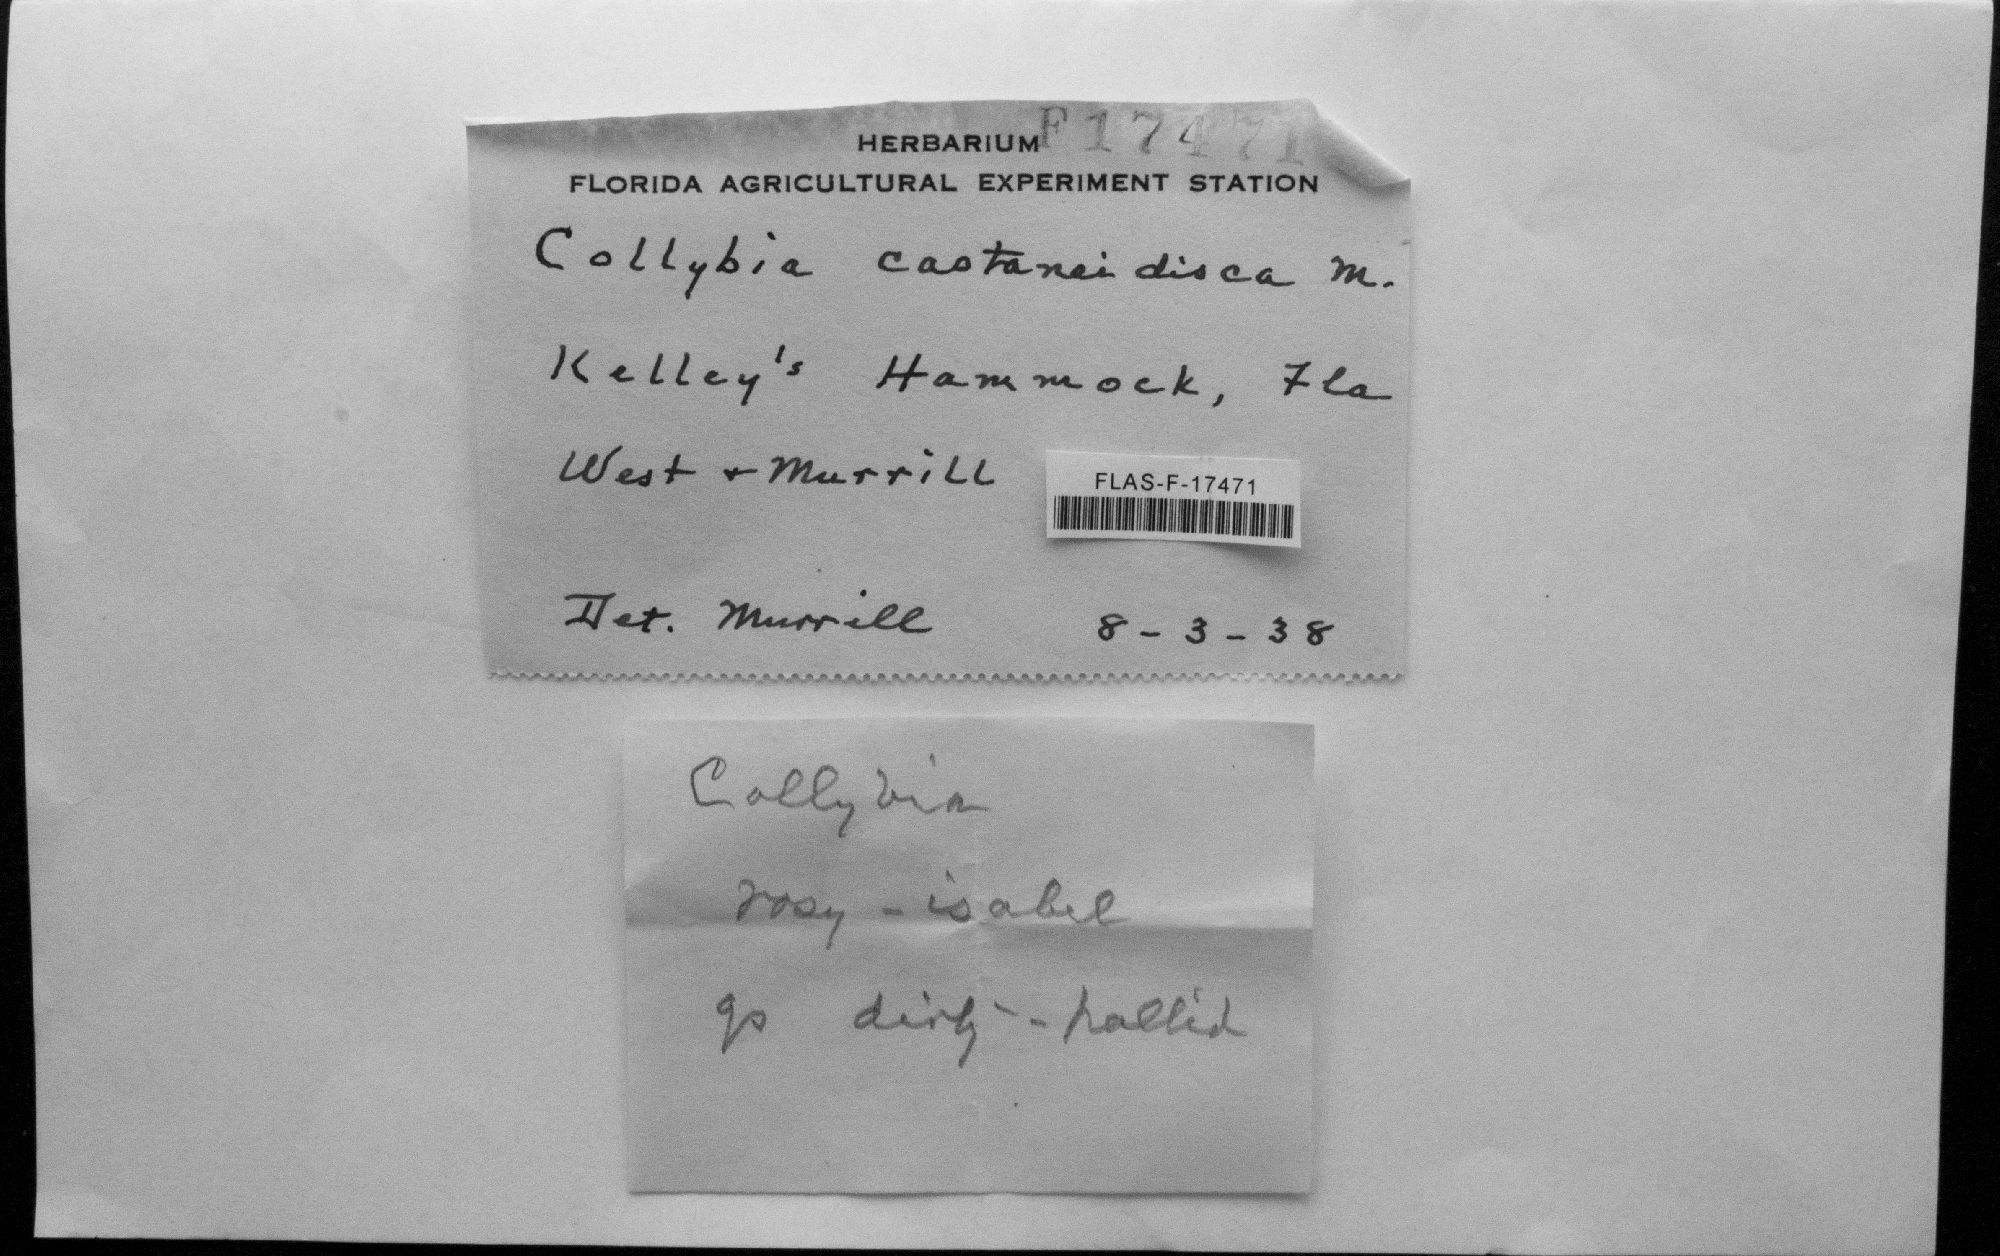 HERBARIUM F17471
FLORIDA AGRICULTURAL EXPERIMENT STATION
Collybia castaneidisca M.
Kelley's Hammock, Fla
West + Murrill
FLAS-F-17471
Det. Murrill 8-3-38
Collybia
rosy-isabel
gs dirty-pallid